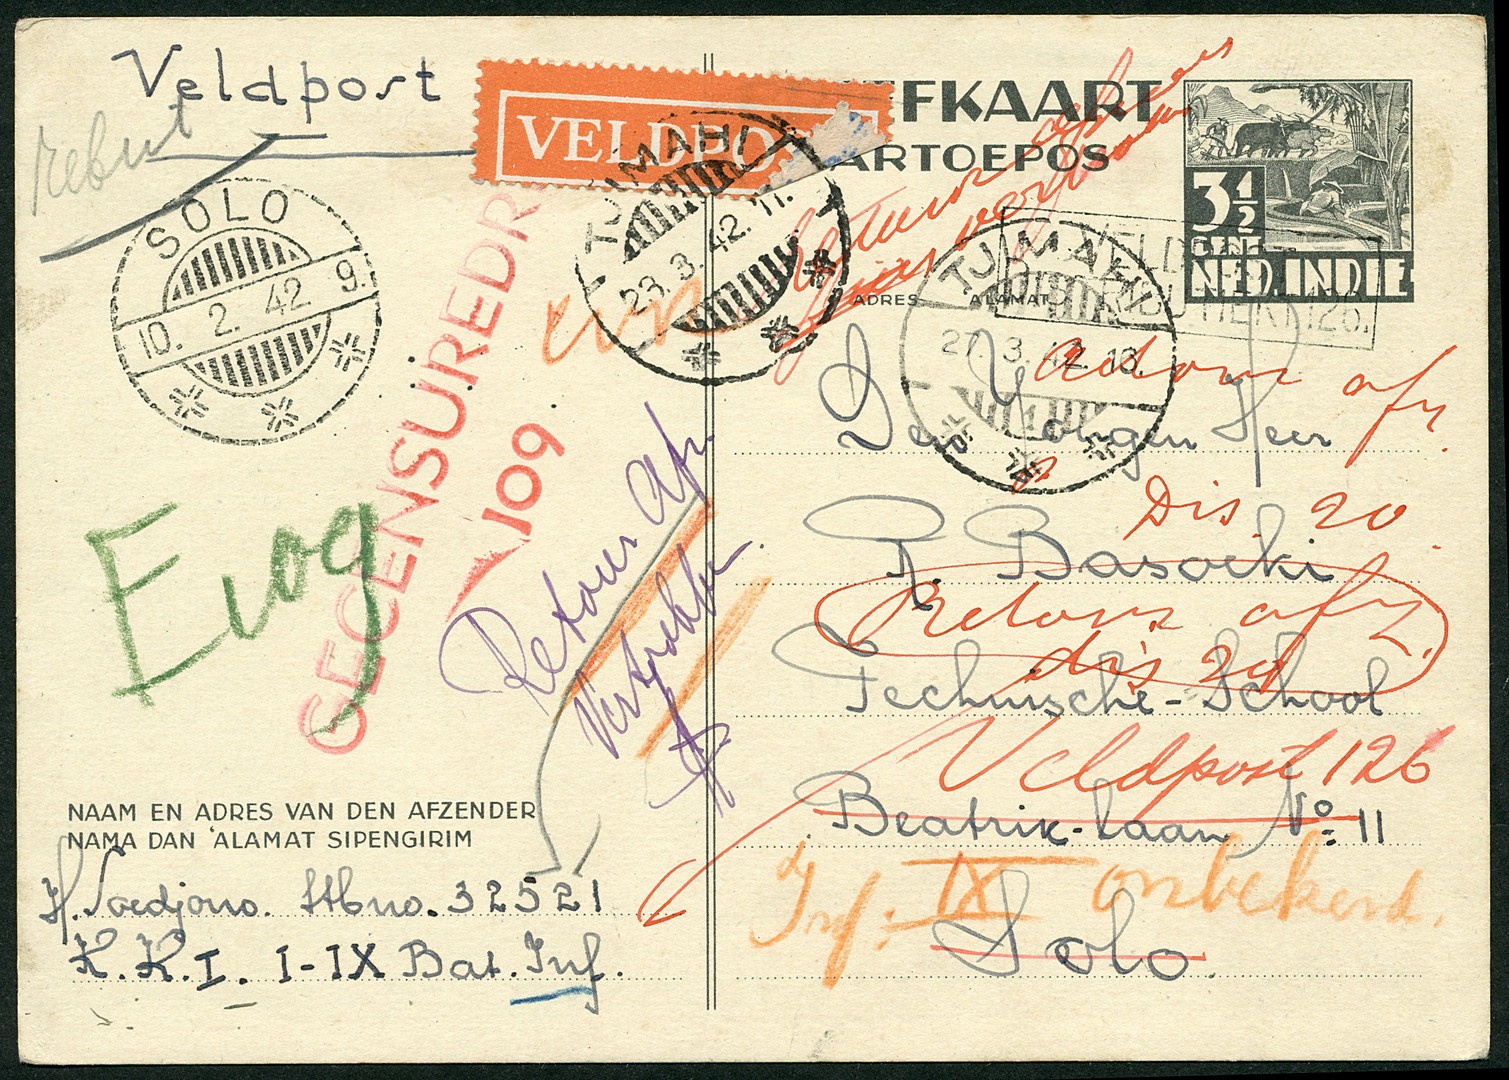 Veldpost
rebut
VELDPO
FKAART
ARTOEPOS
3½
CENT
NED. INDIE
SOLO
10. 2. 42. 9.
TJIMAHI
23. 3. 42. 11.
TJIMAHI
27. 3. 42. 13.
VELDP
GECENSUREERD
109
ADRES: ALAMAT:
Retour afz
Den Heer
Dis 20
R. Basoeki
Retour afz.
dis 20
Technische-School
Veldpost 126
Beatrix-laan No 11
Inf. IX onbekend.
Solo.
Retour Afz.
Vertrokken
NAAM EN ADRES VAN DEN AFZENDER
NAMA DAN 'ALAMAT SIPENGIRIM
H. Soedjono. Stbno. 32521
K.K.I. I-IX Bat. Inf.